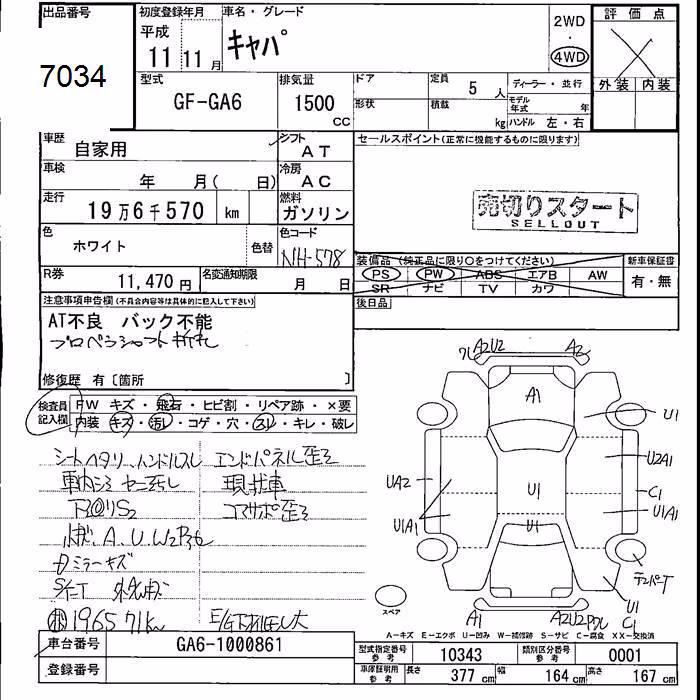 出品番号
7034
初度登録年月
平成
11 11 月
車名・グレード
キャパ
2WD
・
4WD
評価点
外装 内装
型式
GF-GA6
排気量
1500
CC
ドア
形状
定員
5 人
積載
kg
ディーラー・並行
モデル年式 年
ハンドル 左・右
車歴
自家用
シフト
AT
車検
年 月( 日)
冷房
AC
走行
19万6千570 km
燃料
ガソリン
色
ホワイト
色替
色コード
NH-578
R券
11,470 円
名変通知期限
月 日
セールスポイント(正常に機能するものに限ります)
売切りスタート
SELLOUT
装備品 (純正品に限り○をつけてください)
PS PW ABS エアB AW
SR ナビ TV カワ
新車保証書
有・無
後日品
注意事項申告欄(不具合内容等は具体的に記入して下さい)
AT不良 バック不能
プロペラシャフト折れ
修復歴 有〔箇所 〕
検査員記入欄
FW キズ・飛石・ヒビ割・リペア跡・×要
内装 キズ・汚れ・コゲ・穴・スレ・キレ・破レ
シートヘタリ、ハンドルスレ
エンドパネル歪ミ
現状車
コアサポ歪ミ
小キズ、A、U、W2
ミラーキズ
1965 71km
E/G下
フレ A2U2 A2
A1
U1
U2A1
UA2
C1
U1A1
U1A1
U1
U1
テンパT
U1
C1
スペア
A1 A2U2
A－キズ E－エクボ U－凹み W－補修跡 S－サビ C－腐食 XX－交換済
車台番号
GA6-1000861
登録番号
型式指定番号 参考 10343
類別区分番号 参考 0001
車庫証明用 参考 長さ 377 cm 幅 164 cm 高さ 167 cm